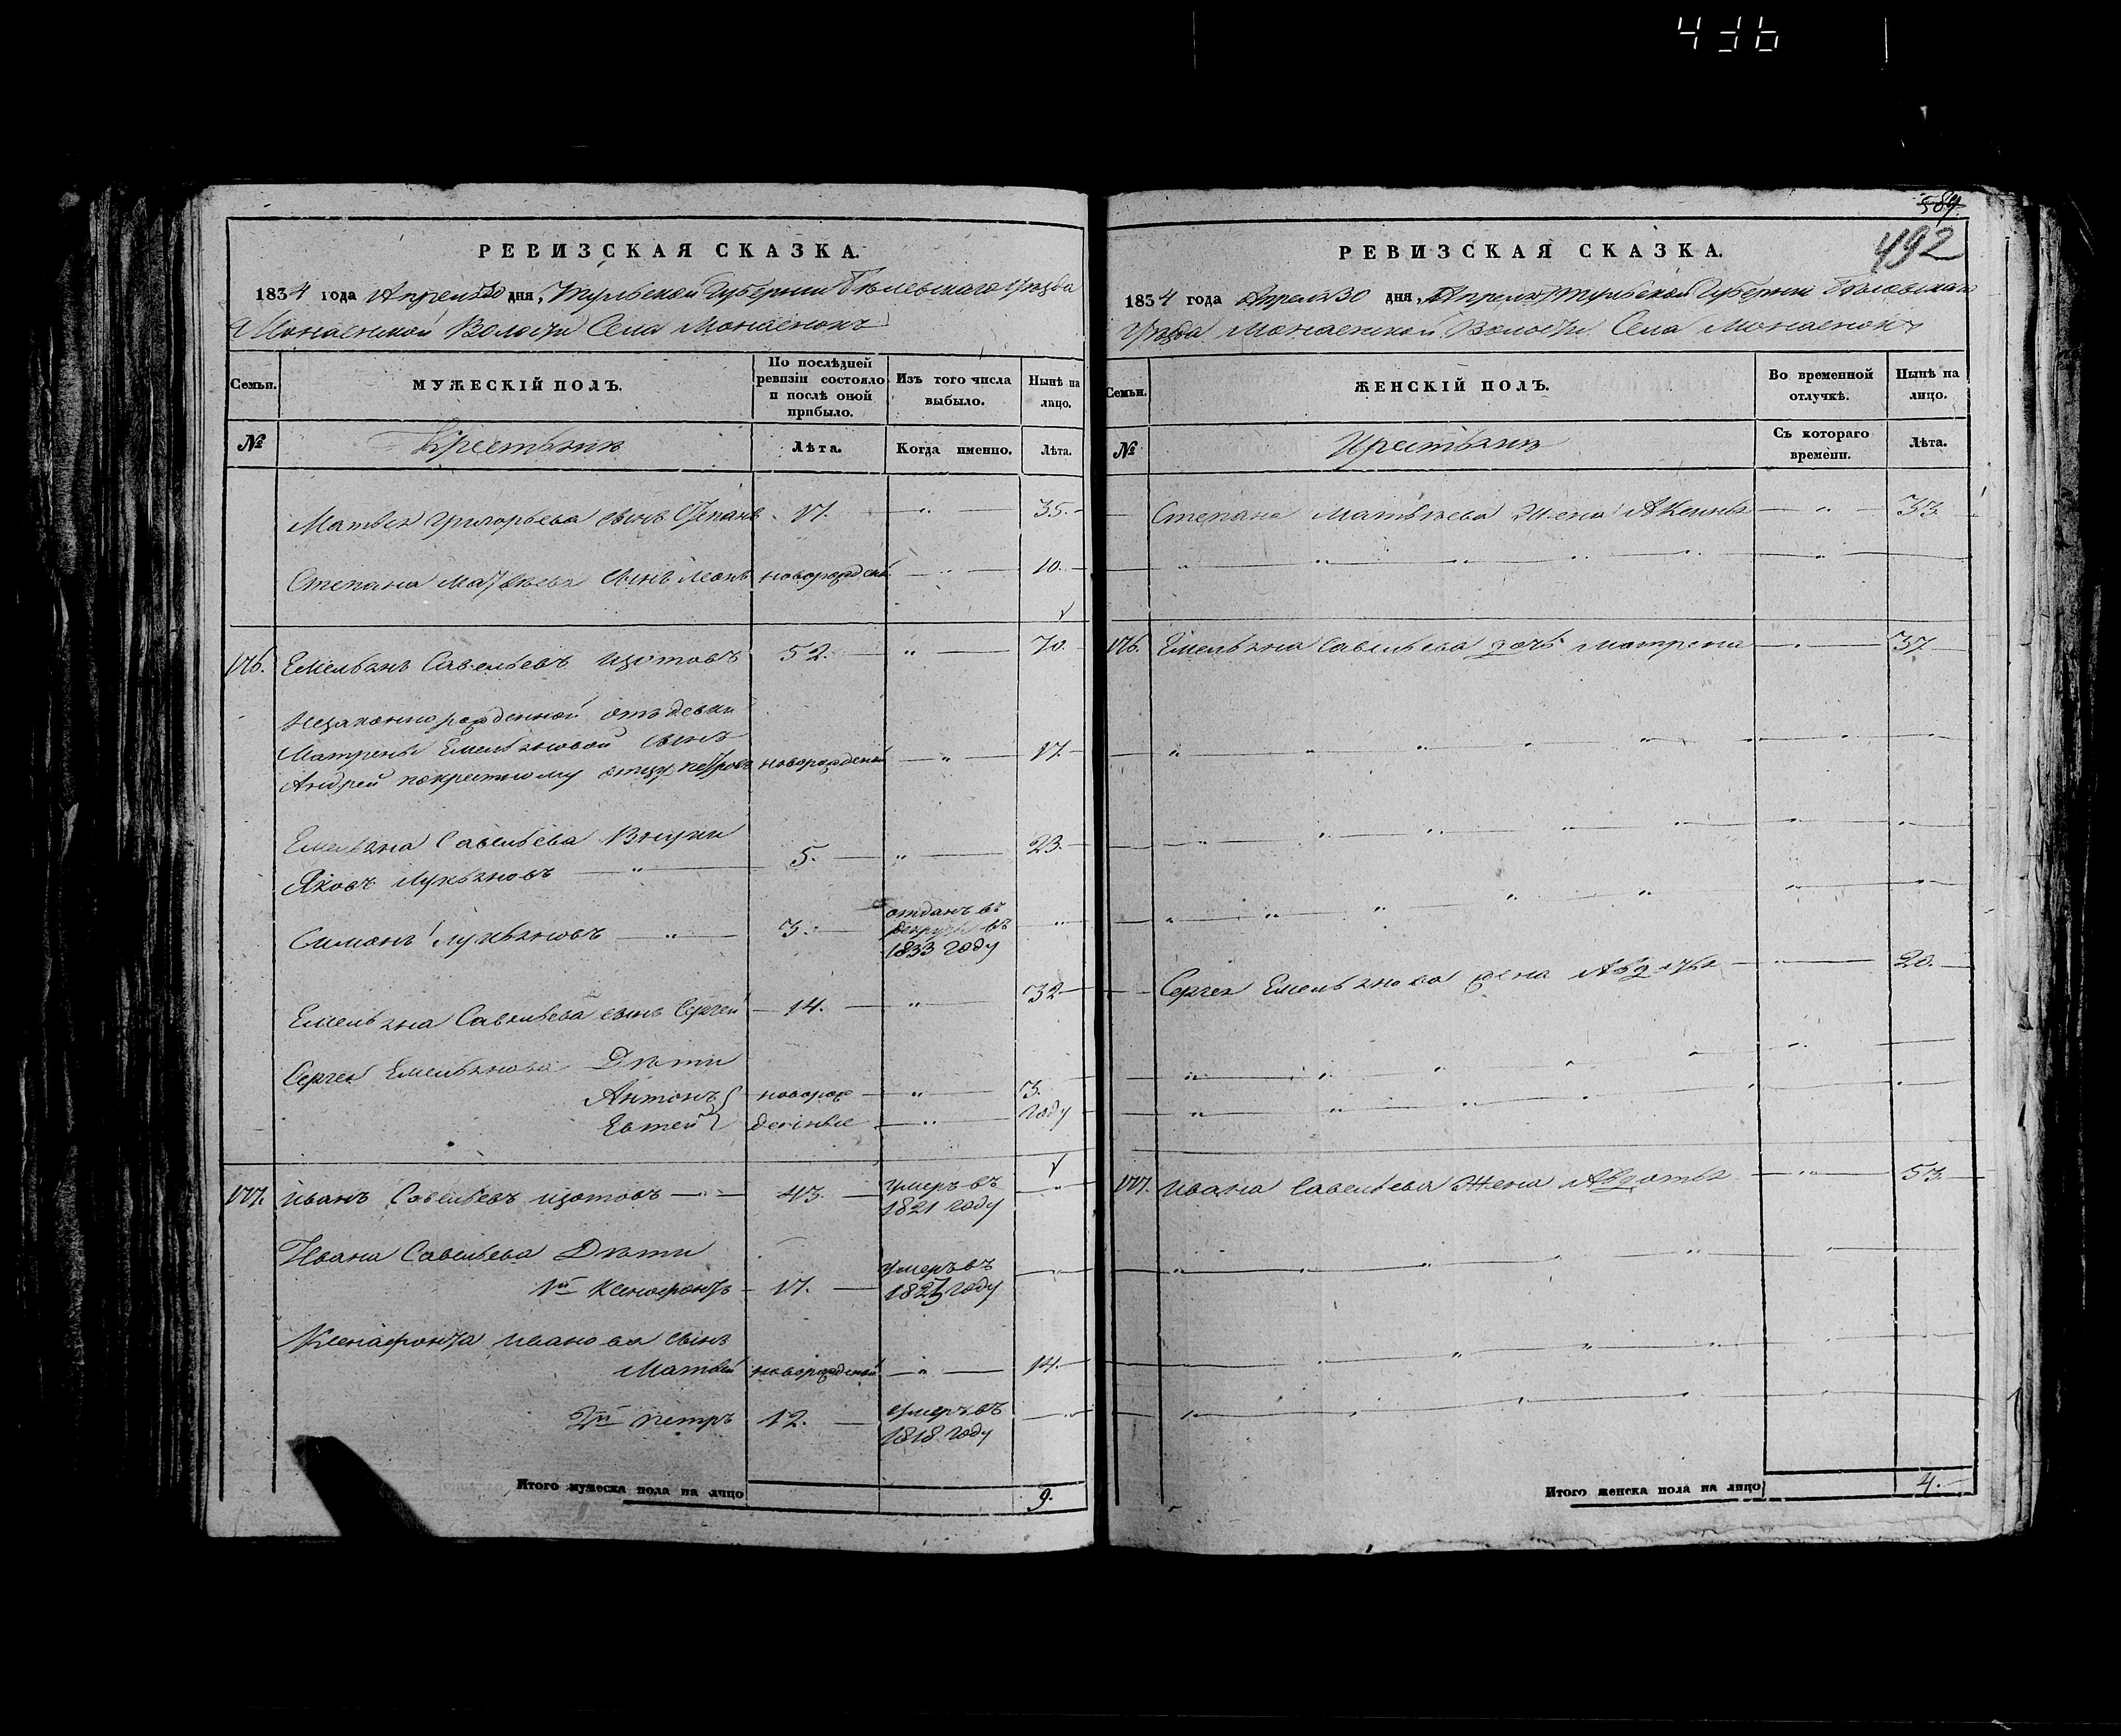 436
РЕВИЗСКАЯ СКАЗКА.
1834 года Апреля 30 дня, Тульской Губернии Бѣлевскаго Уѣзда
Монаенской Волости Села Монаенокъ
Семьи.
МУЖЕСКІЙ ПОЛЪ.
По послѣдней ревизіи состояло и послѣ оной прибыло.
Изъ того числа выбыло.
Нынѣ на лицо.
№
Крестьяне
Лѣта.
Когда именно.
Лѣта.
Матвея Григорьева сынъ Степанъ 17. " 35.
Степана Матвѣева сынъ Леонъ новорожденный " 10.
176. Емельянъ Савельевъ Изотовъ 52. " 70.
Незаконнорожденной отъ девки
Матрены Емельяновой сынъ
Андрей покрестному отцу Петровъ новорожденный " 17.
Емельяна Савельева Внуки
Яковъ Лукьяновъ " 5. " 23.
Симонъ Лукьяновъ " 3. отданъ въ рекруты въ 1833 году "
Емельяна Савельева сынъ Сергей 14. " 32
Сергея Емельянова Дѣти
Антонъ } новорож " 3.
Евтей } денные " году
177. Иванъ Савельевъ Изотовъ 43. умеръ въ 1821 году "
Ивана Савельева Дѣти
1й Ксенофонтъ 17. умеръ въ году "
Ксенафонта Иванова сынъ
Матвей новорожденный " 14.
2й Петръ 12. умеръ въ 1818 году "
Итого мужеска пола на лицо 9.
589
492
РЕВИЗСКАЯ СКАЗКА.
1834 года Апреля 30 дня, Апреля Тульской Губерніи Белевскаго
Уѣзда Монаенской Волости Села Монаенокъ
Семьи.
ЖЕНСКІЙ ПОЛЪ.
Во временной отлучкѣ.
Нынѣ на лицо.
№
Крестьяне
Съ котораго времени.
Лѣта.
Степана Матвѣева Жена Аксинья " 33
176. Емельяна Савельева дочь Матрена " 37
Сергея Емельянова жена Авдотья " 20.
177. Ивана Савельева Жена Авдотья " 53
Итого женска пола на лицо 4.